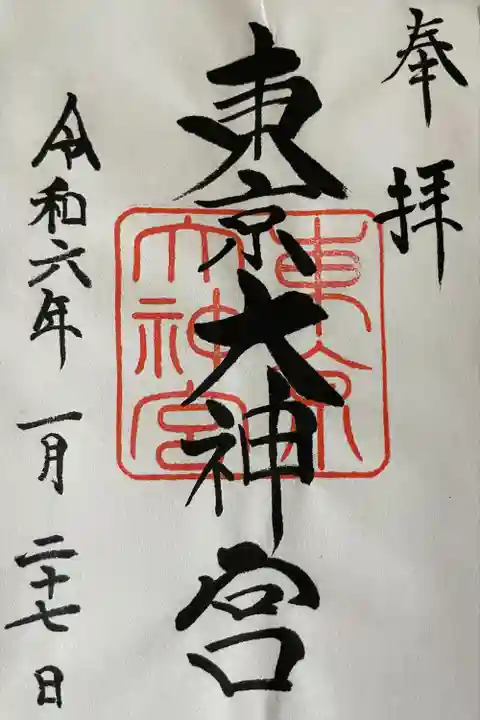 奉拝
東京大神宮
東京
大神宮
令和六年 一月 二十七日